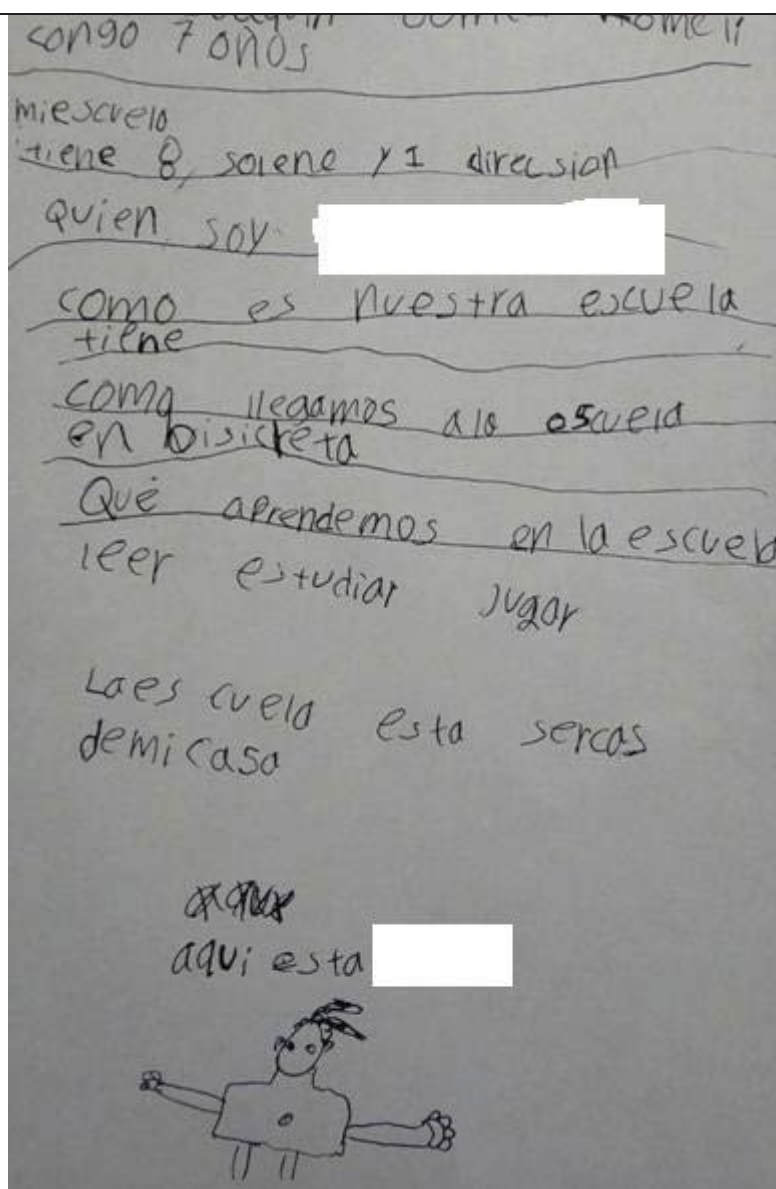 congo 7 años
miescuela
tiene 8, salene y 1 direcsion
quien soy
como es nuestra escuela
tiene
como llegamos a la escuela
en bisicreta
Qué aprendemos en la escuela
leer estudiar jugar
La es cuela esta sercas
demi casa
aqui esta